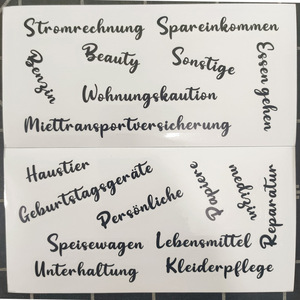 Stromrechnung Spareinkommen
Benzin
Beauty
Sonstige
Essen gehen
Wohnungskaution
Miettransportversicherung
Haustier
Geburtstagsgeräte
Persönliche
Papiere
medizin
Reparatur
Speisewagen Lebensmittel
Unterhaltung Kleiderpflege